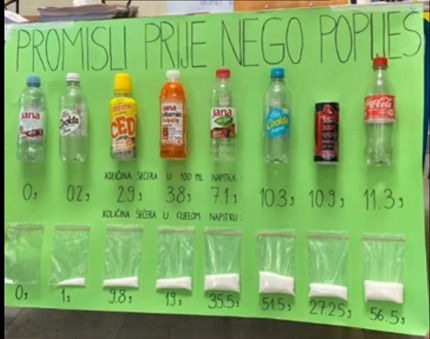 PROMISLI PRIJE NEGO POPIJEŠ
jana
jana
vitamin
jana
Coca-Cola
KOLIČINA ŠEĆERA U 100 ML NAPITKA:
0g 0.2g 2.9g 3.8g 7.1g 10.3g 10.9g 11.3g
KOLIČINA ŠEĆERA U CIJELOM NAPITKU:
0g 1g 9.8g 19g 35.5g 51.5g 27.25g 56.5g